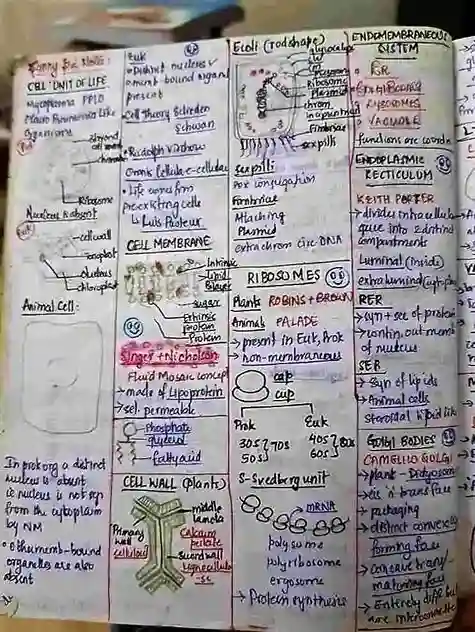 Funny Bio Notes:
CELL: UNIT OF LIFE
Mycoplasma PPLO
Pleuro Pneumonia Like
Organisms
Ribosome
Nucleus absent
cell wall
Tonoplast
Nucleus
chloroplast
Animal Cell:
In prok org a distinct
nucleus is absent
ie nucleus is not sep
from the cytoplasm
by NM
other memb-bound
organelles are also
absent
Euk
Distinct nucleus
memt-bound organel
present
Cell Theory Schleiden
Schwan
Rudolph Virchow
Omnis Cellula-e-cellulae
Life comes from
pre-existing cells
Luis Pasteur
CELL MEMBRANE
Intrinsic
Lipid
Bilayer
sugar
Extrinsic
protein
Protein
Singer + Nicholson
Fluid Mosaic concept
→ made of Lipoprotein
→ sel. permeable
Phosphate
glycerol
fatty acid
CELL WALL (Plants)
middle
lamela
Calcium
pectate
Primary
wall
cellulose
Sec wall
Ecoli (rod shape)
glycocalyx
Ribosome
Plasmid
chrom
Fimbriae
sex pilli
Sex pilli
For conjugation
Fimbriae
Attaching
Plasmid
extra chrom circ DNA
RIBOSOMES
Plants ROBINS + BROWN
Animal PALADE
→ present in Euk, Prok
→ non-membraneous
cap
cup
Prok Euk
30S 70S 40S 80S
50S 60S
S-Svedberg unit
mRNA
polysome
polyribosome
ergosome
→ Protein synthesis
ENDOMEMBRANEOUS
SISTEM
ER
GOLGI BODIES
LISOSOMES
VACUOLE
functions are coordin
ENDOPLASMIC
RECTICULUM
KEITH PORTER
→ divides intracellular
space into 2 distinct
compartments
Luminal (inside)
extraluminal (cytoplasm)
RER
→ syn + sec of protein
→ contin. out memb
of nucleus
SER
→ Syn of lipids
→ Animal cells
Steroidal lipid like
GOLGI BODIES
CAMELLIO GOLGI
→ plant - Dictyosome
→ cis n' trans face
→ packaging
→ distinct convex/cis
forming face
→ concave trans/
maturing face
→ Entirely diff but
are interconnected